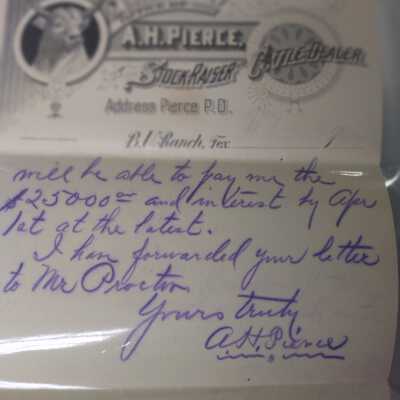 OFFICE OF
A.H. PIERCE,
STOCK RAISER CATTLE DEALER
Address Pierce P.O.
Ranch, Tex
will be able to pay me the
$25000 00 and interest by Apr
1st at the latest.
I have forwarded your letter
to Mr Proctor
Yours truly
A.H. Pierce